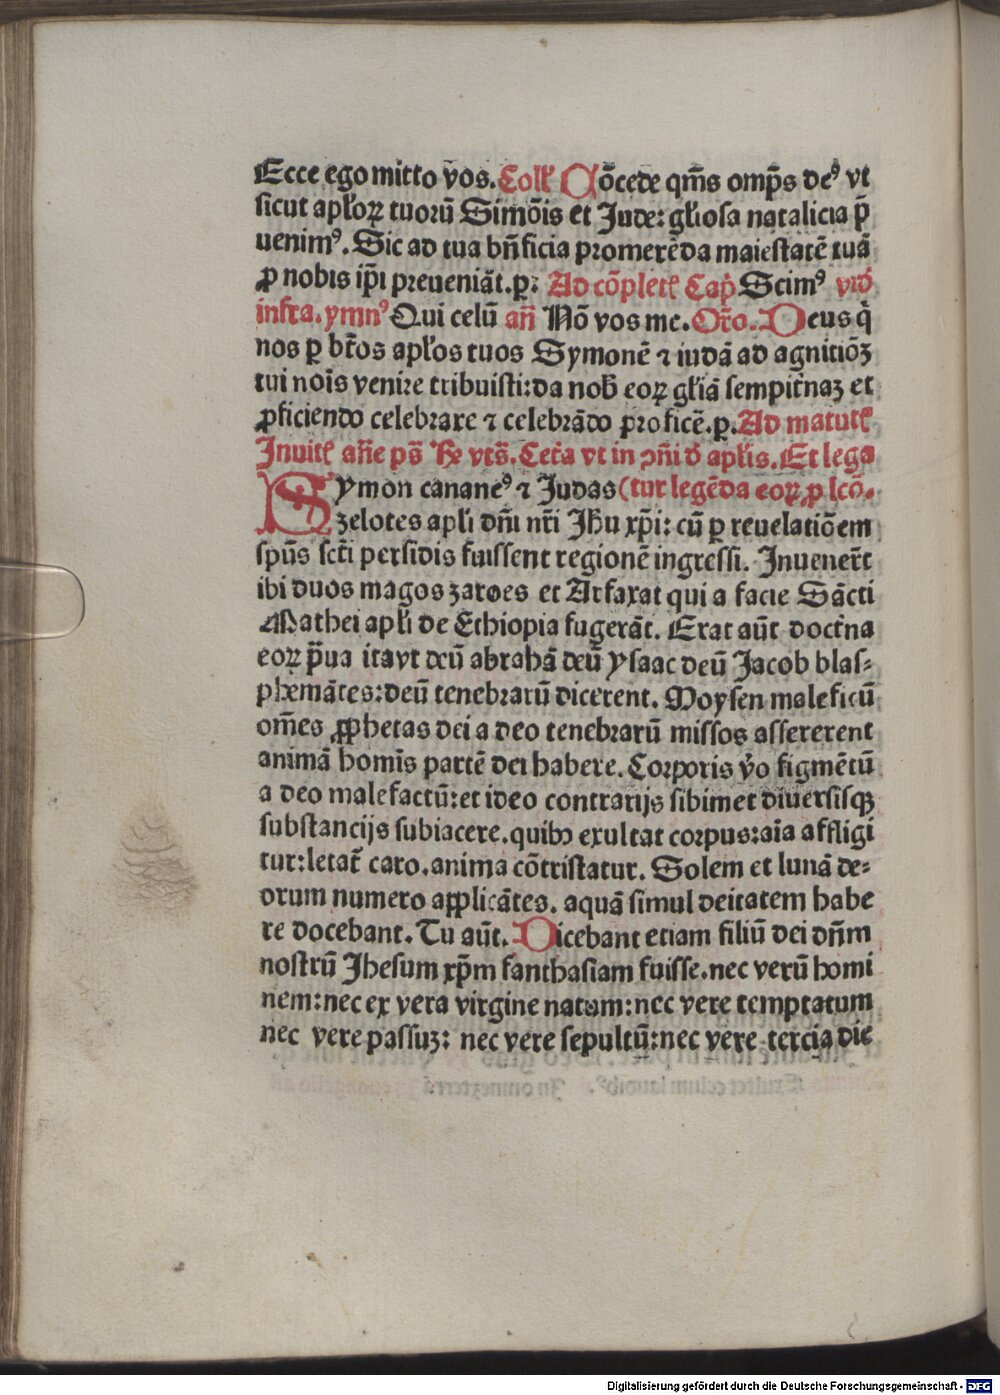 Ecce ego mitto vos. Coll' Cōcede qm̄s omp̄s deꝰ vt
sicut apl'oꝝ tuoꝝ Simōis et Jude: gl'iosa natalicia p̄
uenimꝰ. Sic ad tua bn̄ficia promerēda maiestatē tuā
ꝓ nobis ip̄i preueniāt. ꝑ: Ad cōplet' Cap̄ Scimꝰ vid'
infra. ymnꝰ Qui celū an̄ Nō vos me. Or̄o. Deus q̇
nos ꝑ bt̄os apl'os tuos Symonē ⁊ iudā ad agnitiōꝫ
tui nois̄ venire tribuisti: da nob̄ eoꝝ gl'iā sempit̄naꝫ et
ꝓficiendo celebrare ⁊ celebrādo proficē. ꝑ. Ad matut'
Inuit' an̄e ps̄ Hꝰ vts̄. Cet̄a vt in ꝯn̄i d' apl'is. Et lega
Symon cananeꝰ ⁊ Judas (tur legēda eoꝝ ꝓ lcō.
zelotes apl'i dn̄i nr̄i Jh̄u xp̄i: cū ꝑ reuelatiōem
spūs sct̄i persidis fuissent regionē ingressi. Inuener̄t
ibi duos magos zaroes et Arfaxat qui a facie Sācti
Mathei apl'i de Ethiopia fugerāt. Erat aūt doct̄na
eoꝝ p̄ua itavt deū abrahā deū ysaac deū Jacob blas⸗
phemātes: deū tenebrarū dicerent. Moysen maleficū
om̄es ꝓphetas dei a deo tenebrarū missos assererent
animā homīs partē dei habere. Corporis v̄o figmētū
a deo malefactū: et ideo contrarijs sibimet diuersisqꝫ
substancijs subiacere. quibꝰ exultat corpus: aīa affligi
tur: letat̄ caro. anima cōtristatur. Solem et lunā de⸗
orum numero applicātes. aquā simul deitatem habe
re docebant. Tu aūt. Dicebant etiam filiū dei dn̄m
nostrū Jhesum xp̄m fanthasiam fuisse. nec verū homi
nem: nec ex vera virgine natum: nec vere temptatum
nec vere passuꝫ: nec vere sepultū: nec vere tercia die
Digitalisierung gefördert durch die Deutsche Forschungsgemeinschaft - DFG